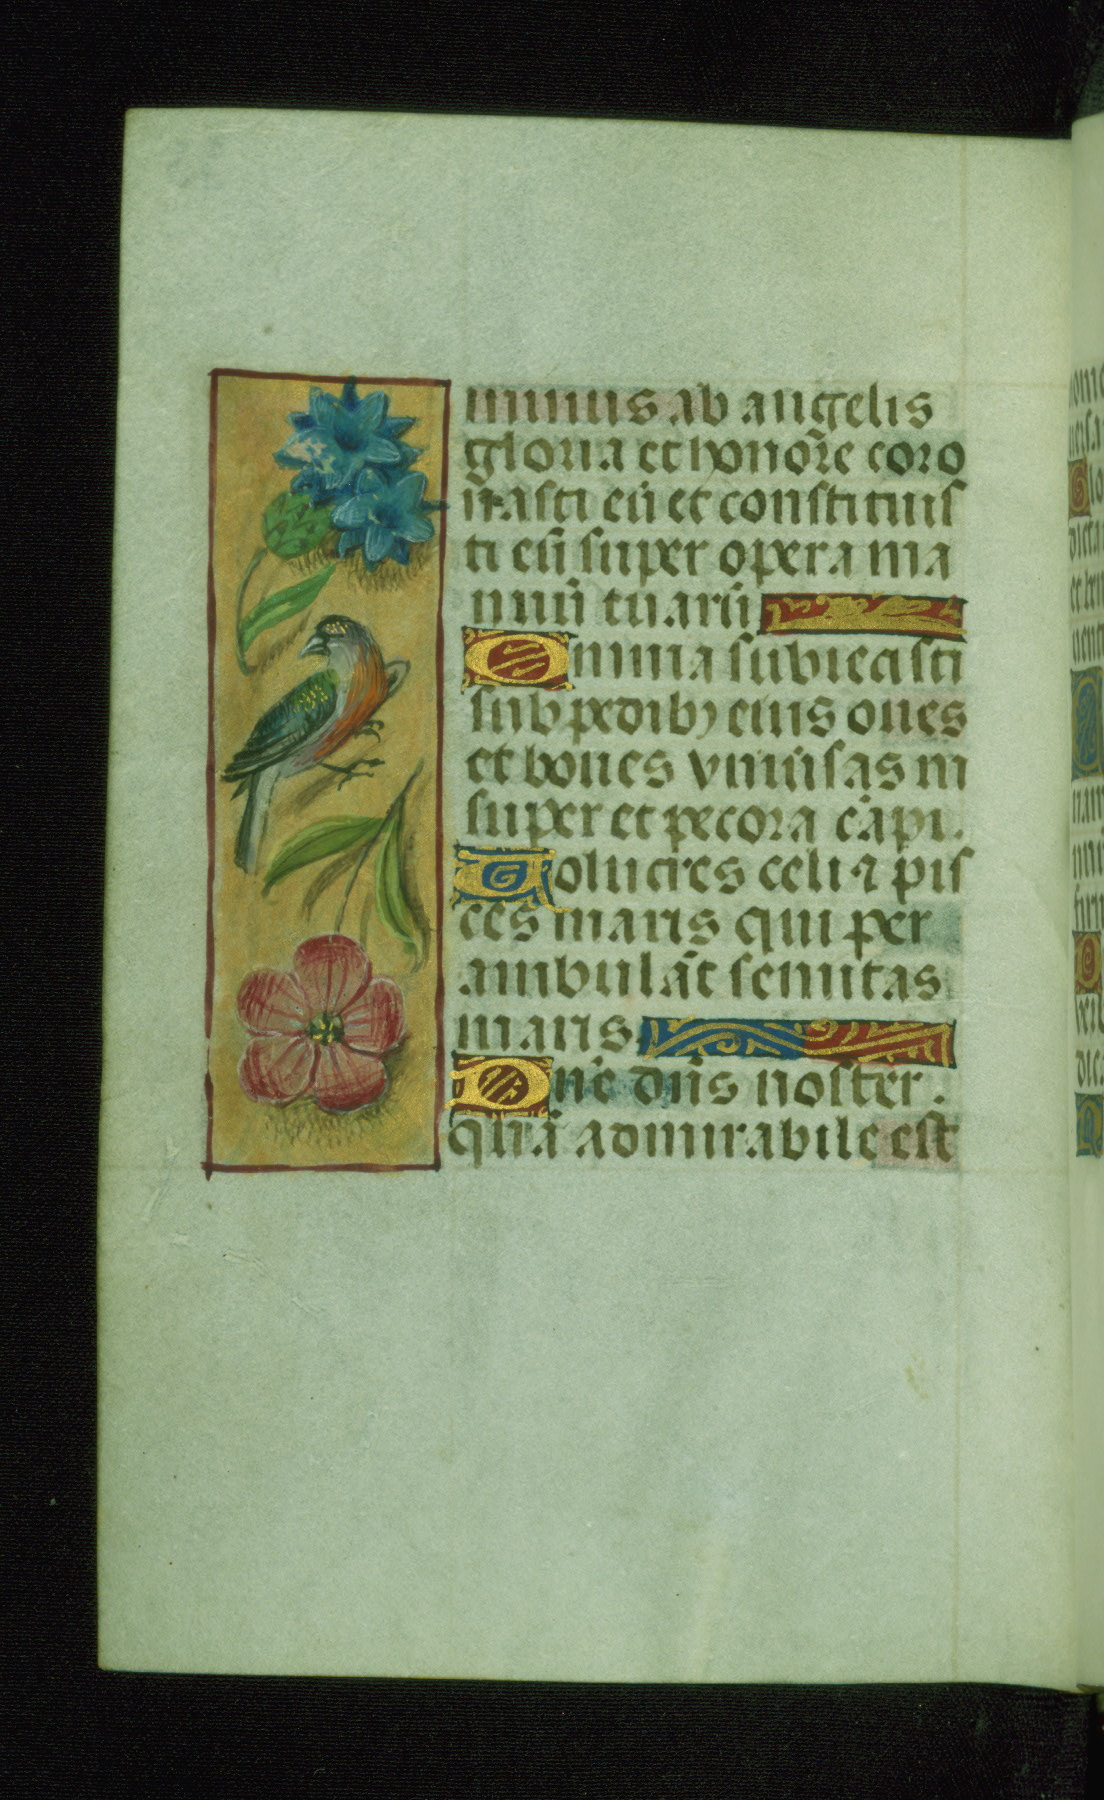 minus ab angelis
gloria et honor̄e coro
nasti eū et constituis
ti eū super opera ma
nuū tuarū
Omnia subiecisti
sub pedibꝰ eius oues
et boues vniūsas in
super et pecora cāpi.
Volucres celi ⁊ pis
ces maris qui per
ambulāt semitas
maris
Dn̄e dn̄s noster.
q̄ꝫ admirabile est